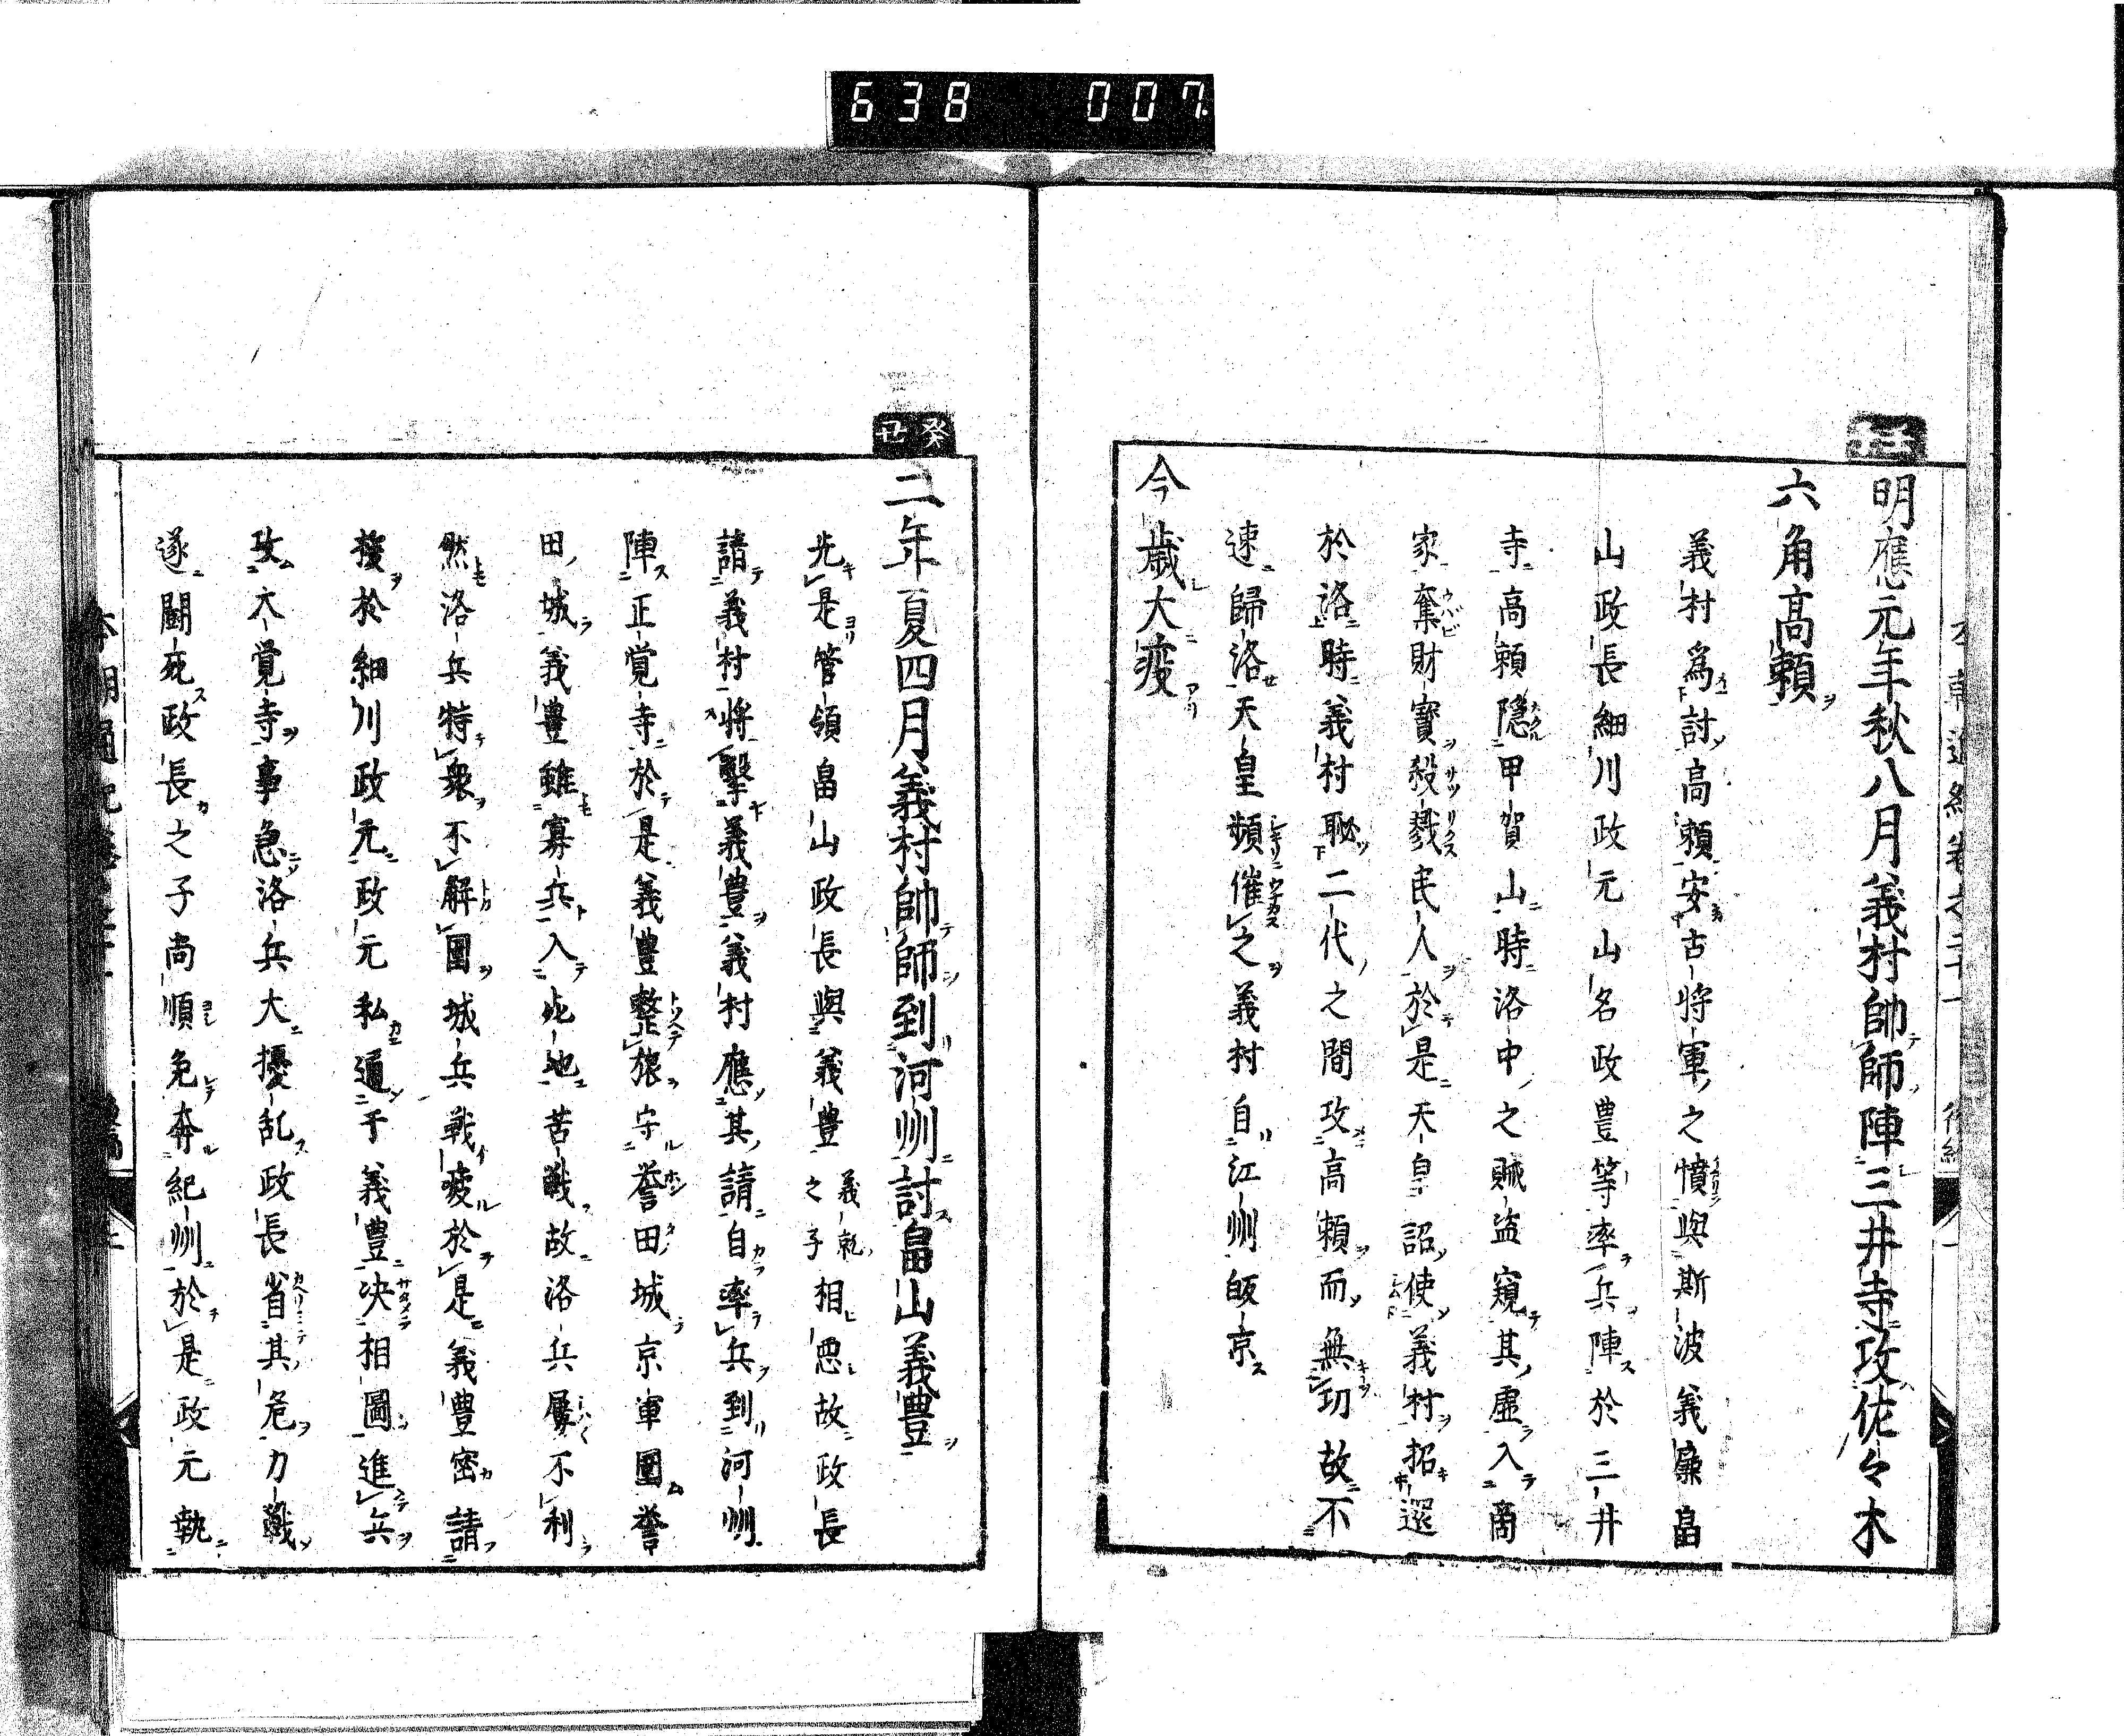 638 007
明應元年秋八月義村帥師陣三井寺攻佐々木
六角髙頼
義村為討高頼安古将軍之憤與斯波義廉畠
山政長細川政元山名政豊等率兵陣於三井
寺高頼隠甲賀山時洛中之賊盗窺其虚入商
家奪財寳殺戮民人於是天皇詔使義村招還
於洛時義村耻二代之間攻高頼而無功故不
速歸洛天皇頻催之義村自江州皈京
今歳大疫
癸丑
二年夏四月義村帥師到河州討畠山義豊
先是管領畠山政長與義豊義就之子相悪故政長
請義村将撃義豊義村應其請自率兵到河州
陣正覚寺於是義豊整粮守誉田城京軍圍誉
田城義豊雖寡兵入死地苦戦故洛兵屡不利
然洛兵特衆不解圍城兵戦疲於是義豊密請
援於細川政元政元私通于義豊决相圖進兵
攻大覚寺事急洛兵大擾乱政長省其危力戦
遂闘死政長之子尚順免奔紀州於是政元執